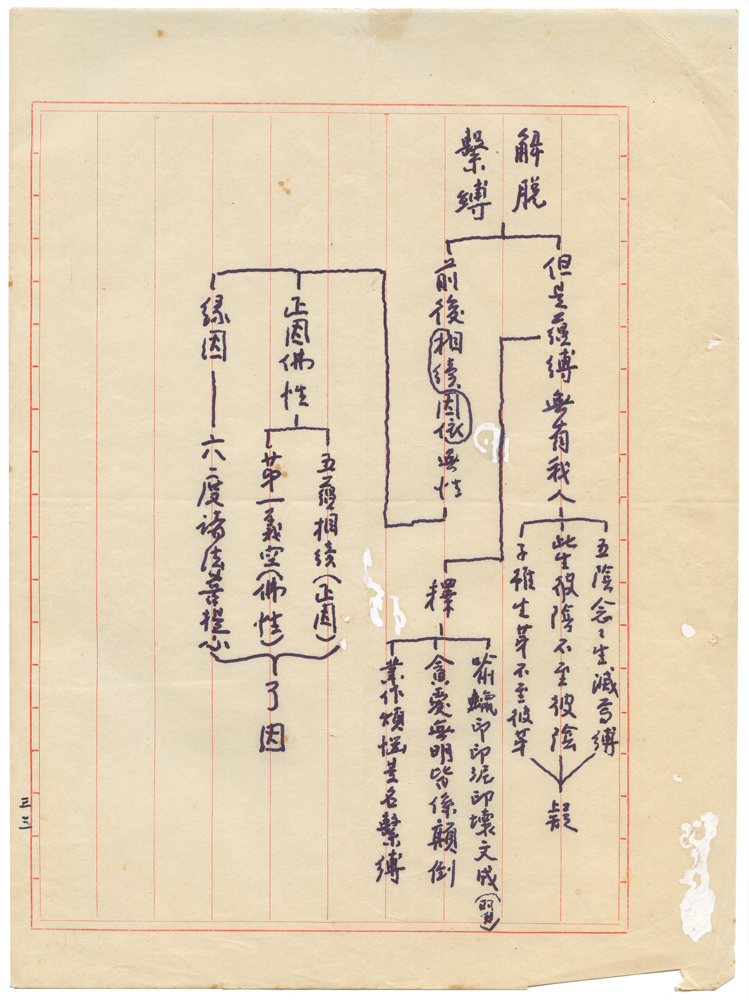 解脫
繫縛
但是蘊縛無有我人
五陰念々生滅為縛
此生彼陰不至彼陰
子雖生芽不至彼芽
疑
前後相續因依無性
釋
喻蠟印印泥印壞文成
貪愛無明皆係顛倒
業作煩惱是名繫縛
正因佛性
五蘊相續(正因)
第一義空(佛性)
緣因
六度諸法菩提心
了因
三三